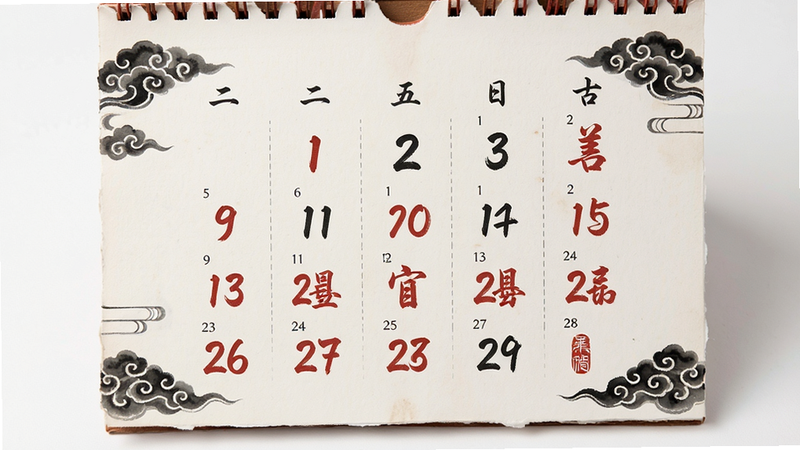 二 二 五 日 古
1 2
1 2 3
5 6 1 1 2
9 11 70 17 15
9 11 12 13 24
13 2 2 2
23 24 25 27 28
26 27 23 29